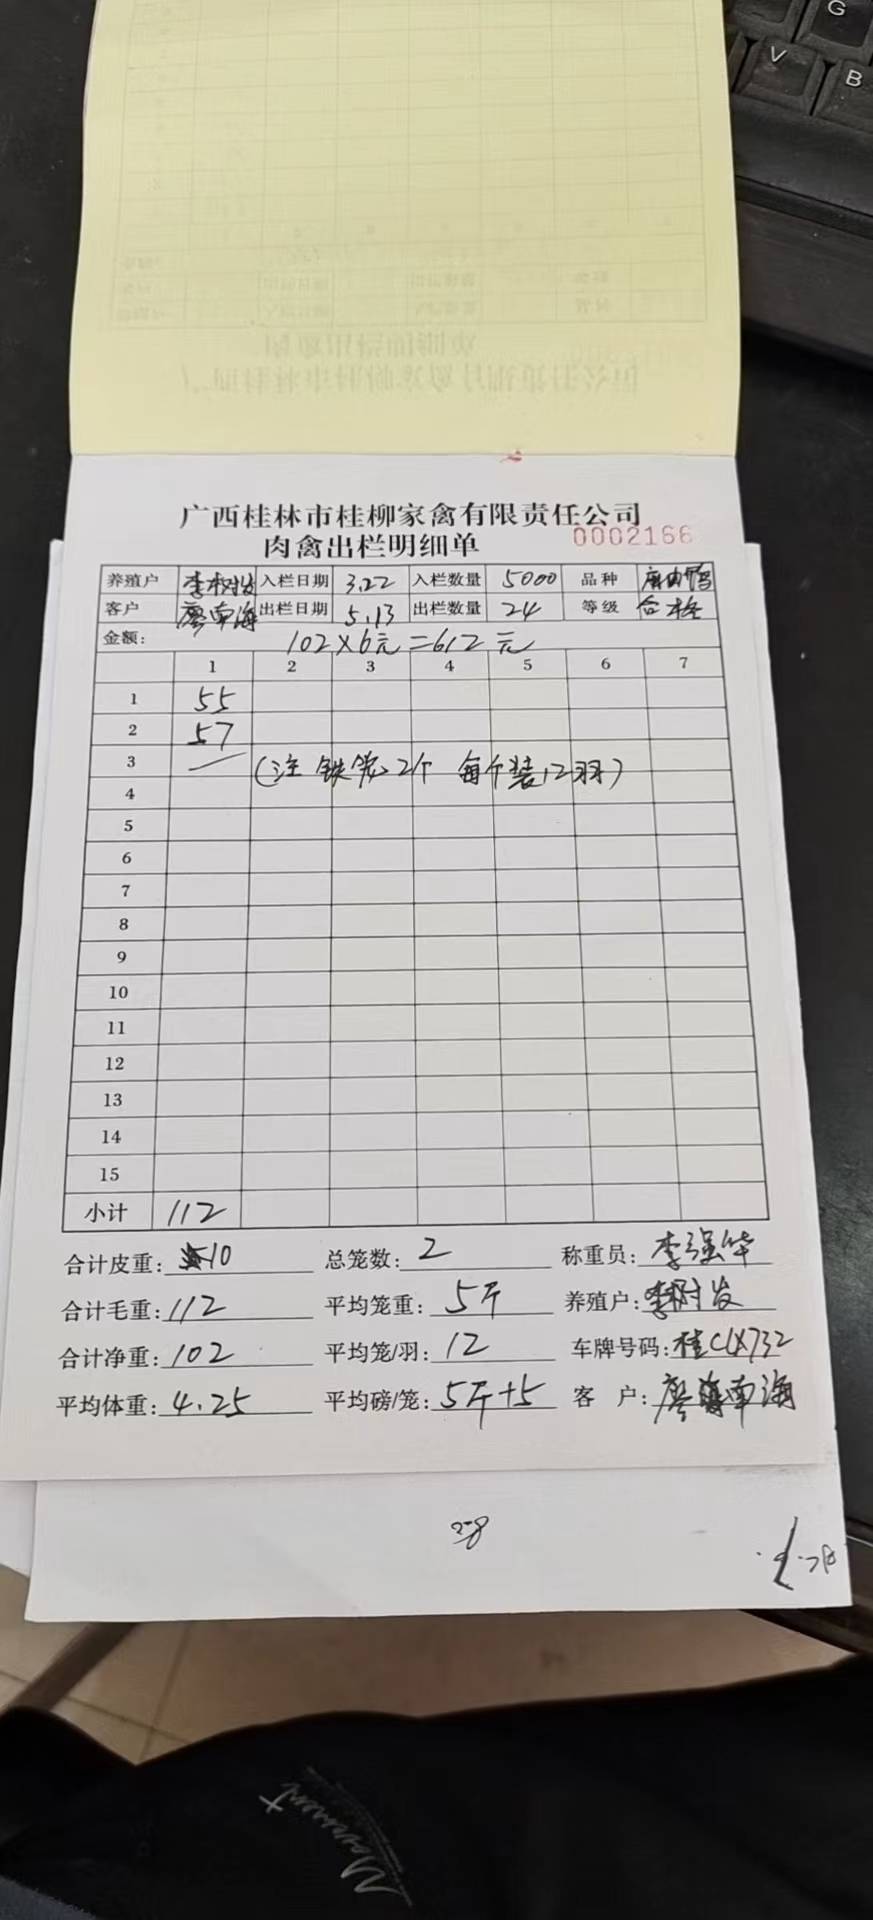 G
V
B
广西桂林市桂柳家禽有限责任公司
肉禽出栏明细单 0002166
养殖户 李树发 入栏日期 3.22 入栏数量 5000 品种
客户 廖南海 出栏日期 5.13 出栏数量 24 等级 合格
金额: 102×6元=612元
1 2 3 4 5 6 7
1 55
2 57
3 (注 铁笼2个 每个装12羽)
4
5
6
7
8
9
10
11
12
13
14
15
小计 112
合计皮重: 10 总笼数: 2 称重员: 李强华
合计毛重: 112 平均笼重: 5斤 养殖户: 李树发
合计净重: 102 平均笼/羽: 12 车牌号码: 桂CLX732
平均体重: 4.25 平均磅/笼: 5斤+5 客 户: 廖南海
Movement